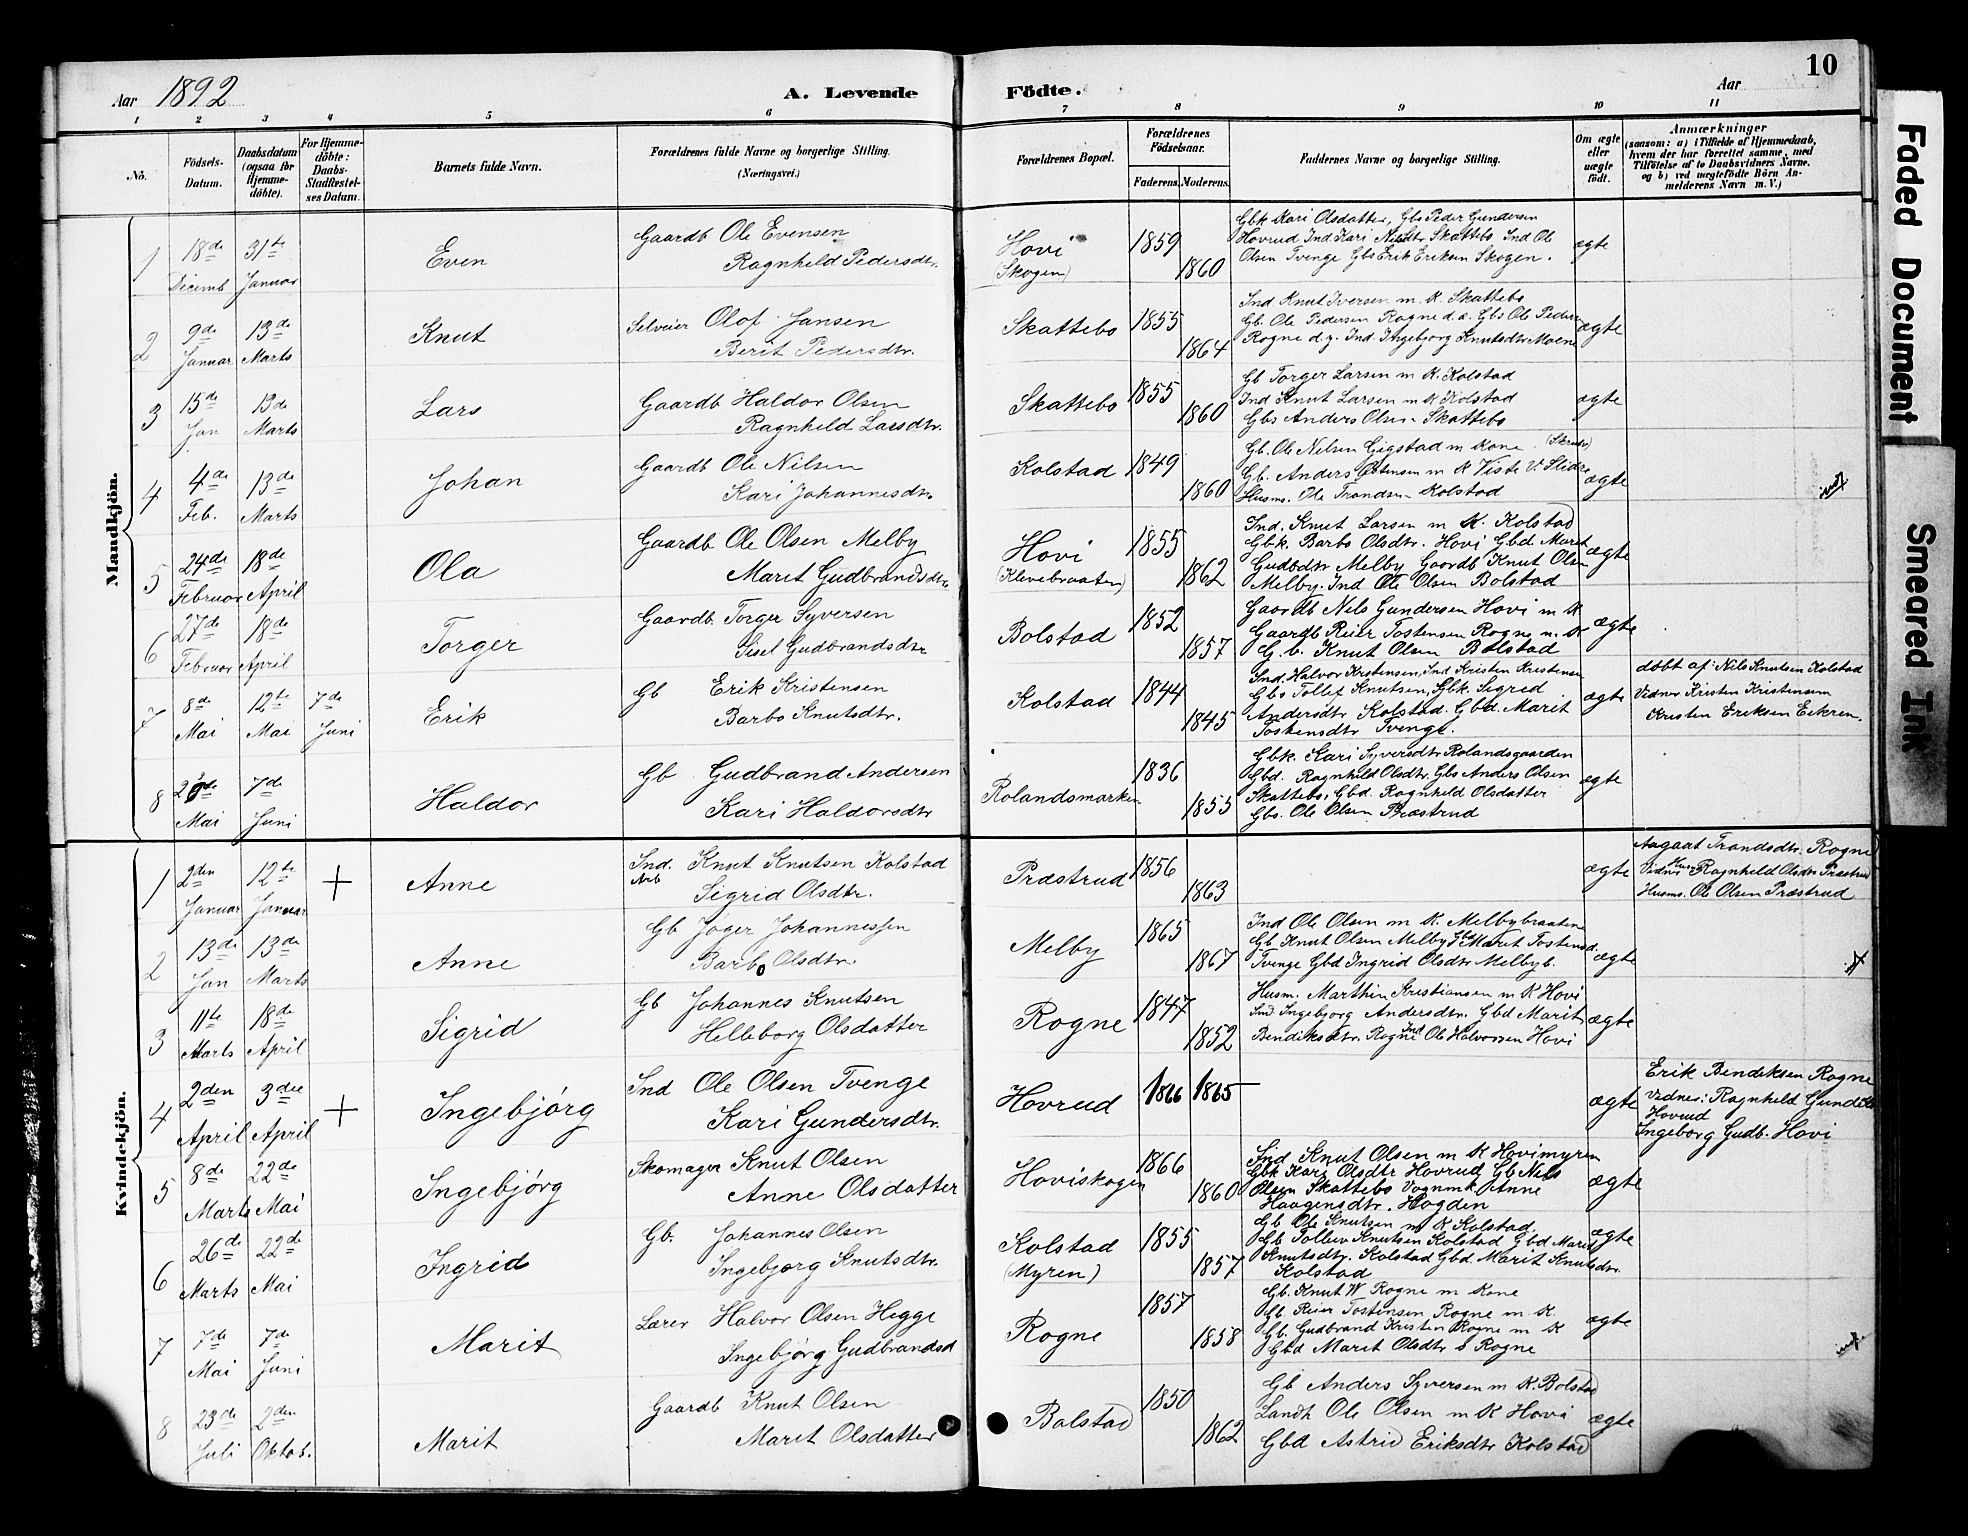 Aar 1892
A. Levende Födte.
Aar
10
1 2 3 4 5 6 7 8 9 10 11
No.
Födsels-Datum.
Daabsdatum (ogsaa for Hjemme-döbte).
For Hjemme-döbte: Daabs-Stadfæstel-ses Datum.
Barnets fulde Navn.
Forældrenes fulde Navne og borgerlige Stilling.
(Næringsvei.)
Forældrenes Bopæl.
Forældrenes Födselsaar.
Faderens. Moderens.
Faddernes Navne og borgerlige Stilling.
Om ægte eller uægte født.
Anmærkninger
(saasom: a) i Tilfælde af Hjemmedaab, hvem der har forrettet samme, med Tilføielse af to Daabsvidners Navne. og b) ved uægtefödte Börn An-melderens Navn m. V.)
Faded Document
Smeared Ink
Mandkjön.
1 18de Decemb 31te Januar
Even
Gaardb Ole Evensen
Ragnheld Pedersdtr.
Hovi
(Skogen)
1859
1860
Gbk Kari Olsdatter, Gbs Peder Gundersen
Hovrud Ind Kari Nilsdtr Skattebo Ind Ole
Olsen Tvenge Gbs Erik Eriksen Skogen.
ægte
2 9de Januar 13de Marts
Knut
Selveier Olof Jansen
Berit Pedersdtr.
Skattebo
1855
1864
Ind Knut Iversen m. K. Skattebo
Gb. Ole Pedersen Rogne d.æ. Gbs Ole Peders
Rogne d.y. Ind. Ingebjorg Knutsdtr Moene
ægte
3 15de Jan 13de Marts
Lars
Gaardb Haldor Olsen
Ragnheld Larsdtr.
Skattebo
1855
1860
Gb Torger Larsen m K. Kolstad
Ind Knut Larsen m K Kolstad
Gbs Anders Olsen Skattebo
ægte
4 4de Feb. 13de Marts
Johan
Gaardb Ole Nilsen
Kari Johannesdtr.
Kolstad
1849
1860
Gb. Ole Nilsen Gigstad m Kone
Gb. Anders Østensen m K Viste V. Slidre
Husm. Ole Trondsen Kolstad
ægte
5 24de Februar 18de April
Ola
Gaardb Ole Olsen Melby
Marit Gudbrandsdtr.
Hovi
(Klevebraaten)
1855
1862
Ind. Knut Larsen m K. Kolstad
Gbk. Barbo Olsdtr. Hovi Gbd Marit
Gudbdtr Melby Gaardb Knut Olsen
Melby. Ind Ole Olsen Bolstad
ægte
6 27de Februar 18de April
Torger
Gaardb. Torger Syversen
Sisel Gudbrandsdtr
Bolstad
1852
1857
Gaardb Nils Gundersen Hovi m K
Gaardb Reier Tostensen Rogne m. K
G.b. Knut Olsen Bolstad
ægte
7 8de Mai 12te Mai 7de Juni
Erik
Gb Erik Kristensen
Barbo Knutsdtr.
Kolstad
1844
1845
Ind. Halvor Kristensen, Ind Kristen Kristensen
Gbs Tollef Knutsen, Gbk. Sigrid
Andersdtr Kolstad. Gbd. Marit
Tostensdtr Tvenge.
ægte
döbt af: Nils Knutsen Kolstad
Vidner Kristen Kristensen
Kristen Eriksen Eekren.
8 Mai 7de Juni
Haldor
Gb Gudbrand Andersen
Kari Haldorsdtr
Rolandsmarken
1836
1855
Gbk. Kari Syversdtr Rolandsgaarden
Gbd. Ragnheld Olsdtr. Gbs Anders Olsen
Skattebo, Gbd. Ragnheld Olsdatter
Gbs. Ole Olsen Præstrud
ægte
Kvindekjön.
1 2den Januar 12te Januar +
Anne
Ind. Arb Knut Knutsen Kolstad
Sigrid Olsdtr.
Præstrud
1856
1863
ægte
Aagaat Trondsdtr. Rogne
Vidner Ragnheld Olsdtr Præstrud
Husm. Ole Olsen Præstrud
2 13de Jan 13de Marts
Anne
Gb Joger Johannessen
Barbo Olsdtr.
Melby
1865
1867
Ind Ole Olsen m K. Melbybraaten
Gb Knut Olsen Melby Gbd Marit Tostensd.
Tvenge Gbd Ingrid Olsdtr Melbyb.
ægte
3 11te Marts 18de April
Sigrid
Gb Johannes Knutsen
Helleborg Olsdatter
Rogne
1847
1852
Husm. Marthin Kristiansen m K Hovi
Ind Ingebjorg Andersdtr. Gbd Marit
Bendiksdtr. Rogne Ind Ole Halvorsen Hovi
ægte
4 2den April 3die April +
Ingebjörg
Ind Ole Olsen Tvenge
Kari Gundersdtr.
Hovrud
1866 1865
ægte
Erik Bendiksen Rogne
Vidner: Ragnheld
Hovrud
Ingeborg Gudb. Hovi
5 8de Marts 22de Mai
Ingebjörg
Skomager Knut Olsen
Anne Olsdatter
Hoviskogen
1866
1860
Ind Knut Olsen m K Hovimyren
Gbk Kari Olsdtr Hovrud Gb Nils
Olsen Skattebo Vognmk. Anne
Haagensdtr. Hogden
ægte
6 26de Marts 22de Mai
Ingrid
Gb. Johannes Olsen
Ingebjorg Knutsdtr.
Kolstad
(Myren)
1855
1857
Gb Ole Knutsen m K Kolstad.
Gb Tollev Knutsen Kolstad Gbd Marit
Knutsdtr. Kolstad Gbd. Marit Knutsdtr.
Kolstad
ægte
7 7de Mai 7de Juni
Marit
Lærer Halvor Olsen Hegge
Ingebjörg Gudbrandsd
Rogne
1857
1858
Gb. Knut W Rogne m Kone
Gb. Reier Tostensen Rogne m K.
Gb. Gudbrand Kristen Rogne m K
Gbd Marit Olsdtr Rogne
ægte
8 23de Juli 2den Oktob.
Marit
Gaardb Knut Olsen
Marit Olsdatter
Bolstad
1850
1862
Gb Anders Syversen m K. Bolstad
Landh Ole Olsen m K Hovi
Gbd Astrid Eriksdtr Kolstad
ægte